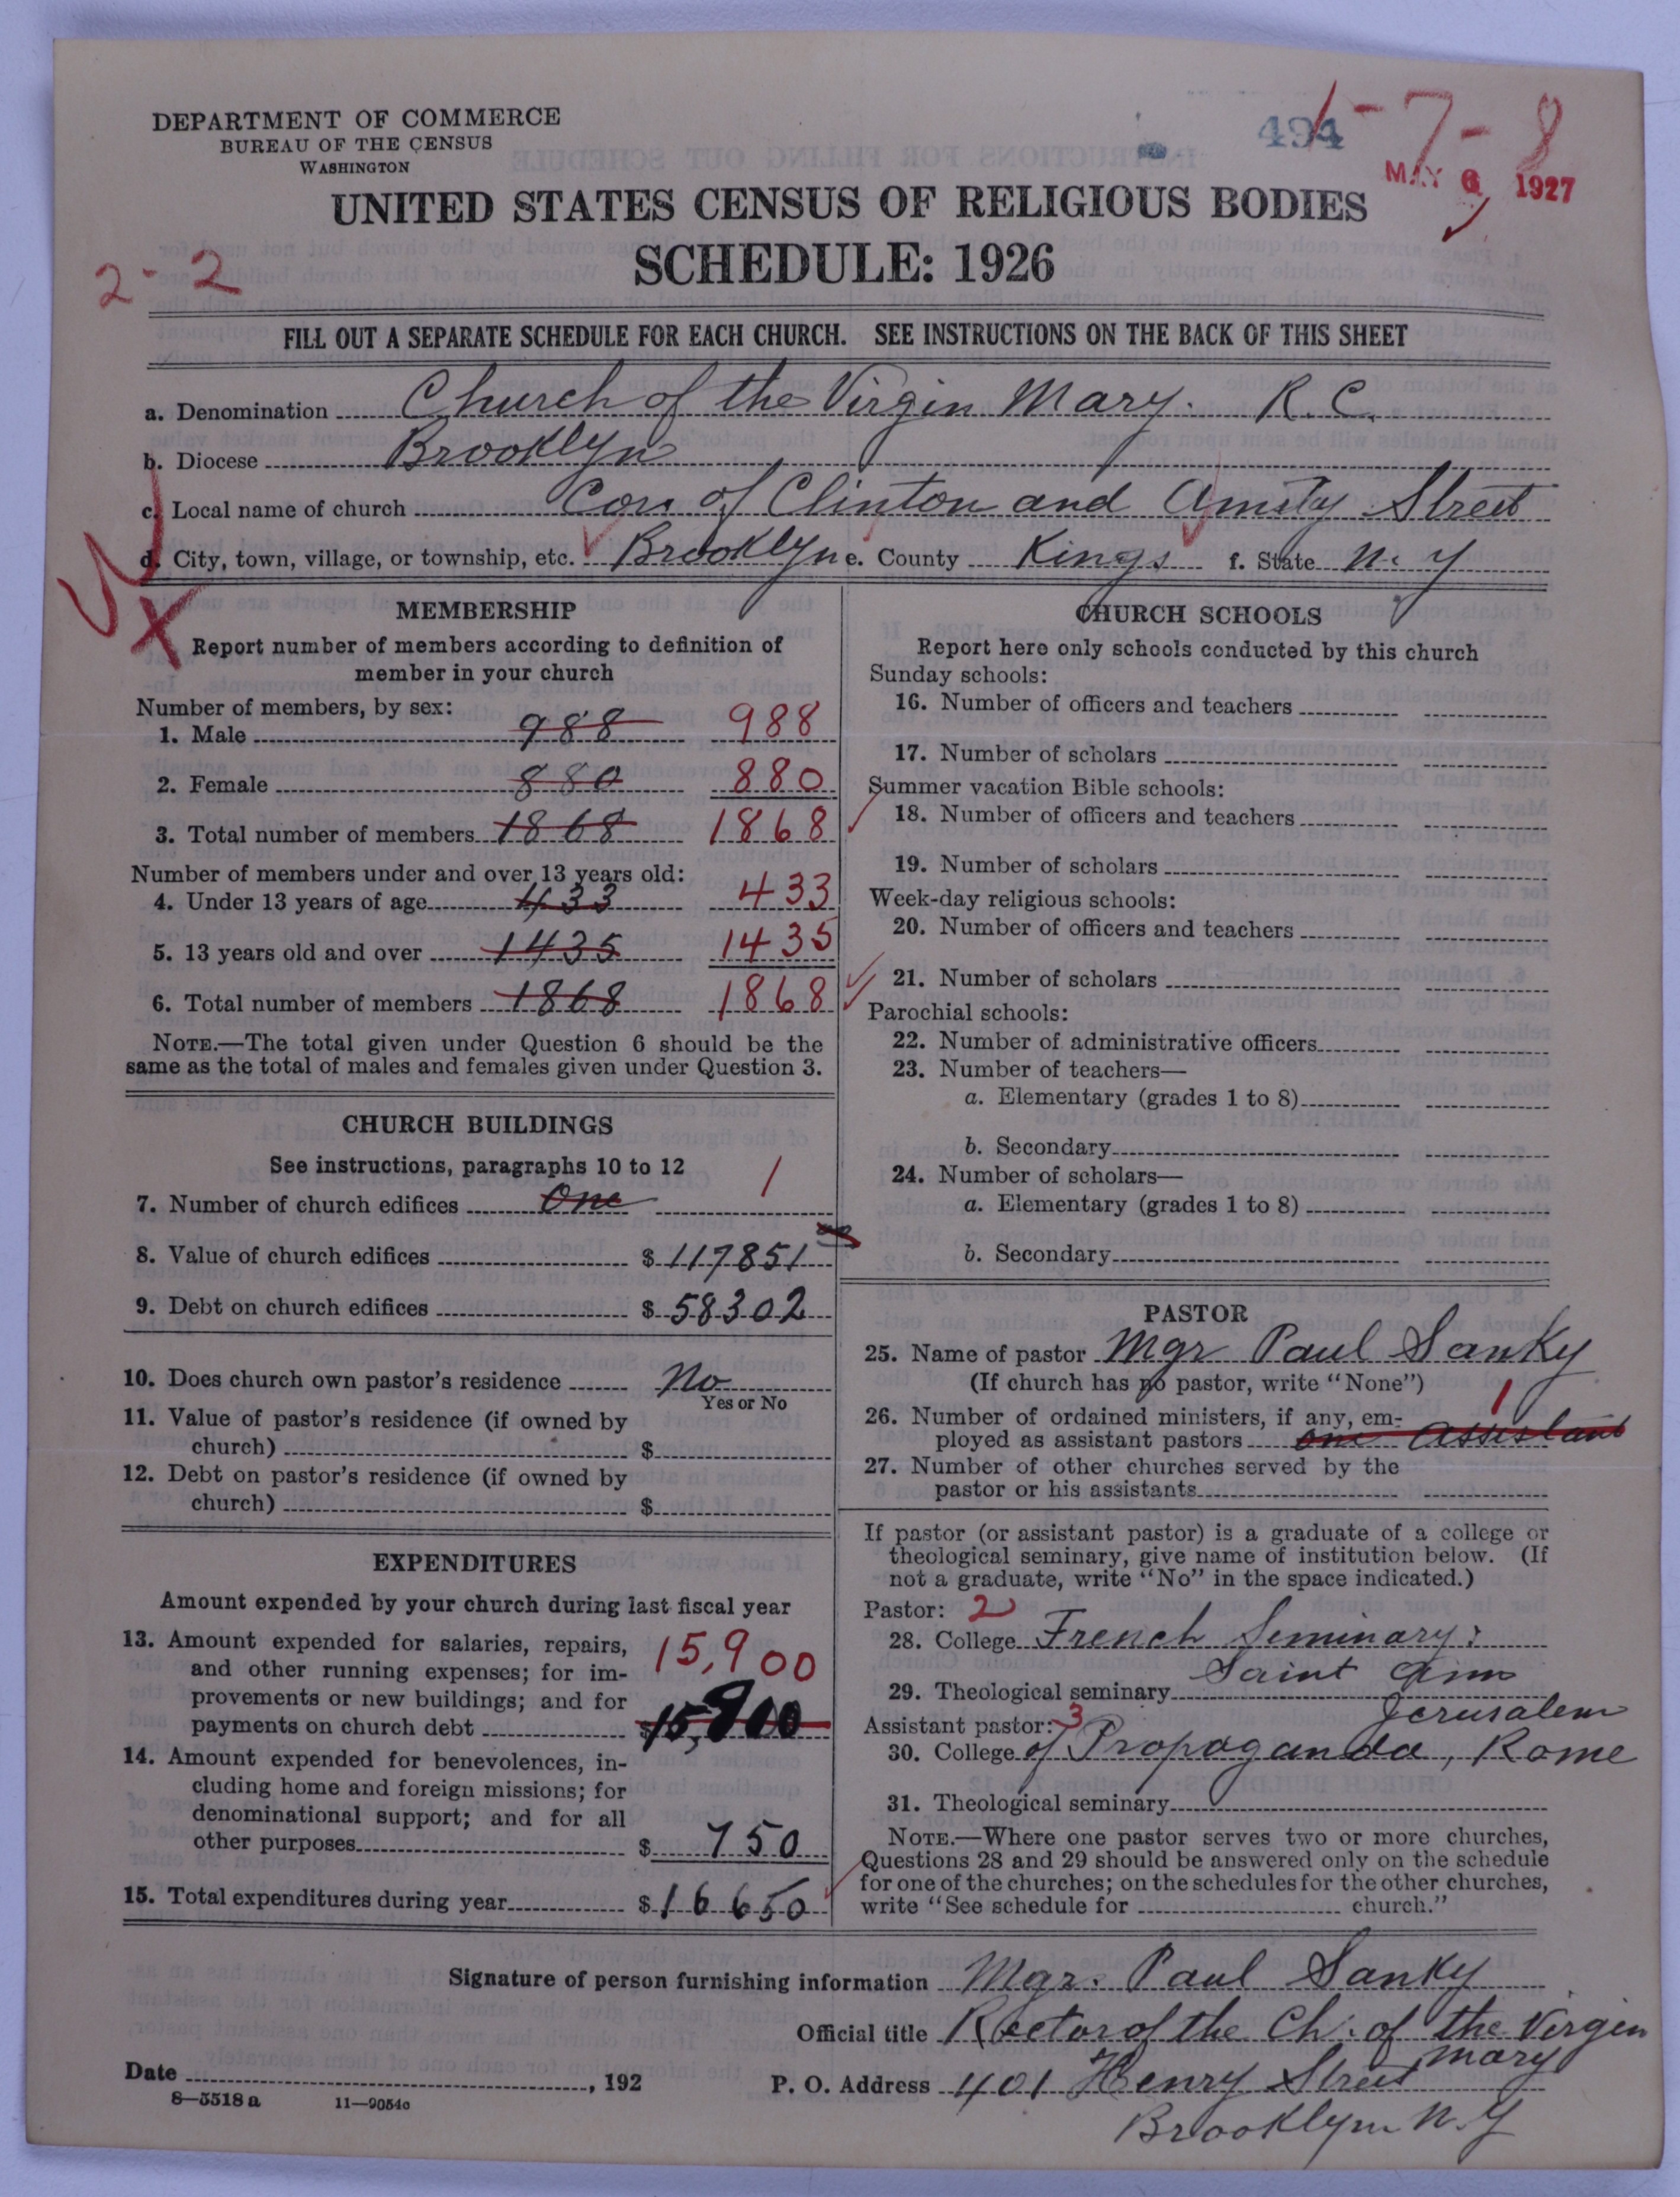 DEPARTMENT OF COMMERCE
BUREAU OF THE CENSUS
WASHINGTON
494
1-7-8
MAY 6 1927
UNITED STATES CENSUS OF RELIGIOUS BODIES
SCHEDULE: 1926
2-2
FILL OUT A SEPARATE SCHEDULE FOR EACH CHURCH. SEE INSTRUCTIONS ON THE BACK OF THIS SHEET
a. Denomination Church of the Virgin Mary. R.C.
b. Diocese Brooklyn
c. Local name of church Cor. of Clinton and Amity Street
d. City, town, village, or township, etc. Brooklyn e. County Kings f. State N.Y
MEMBERSHIP
Report number of members according to definition of
member in your church
Number of members, by sex:
1. Male 988 988
2. Female 880 880
3. Total number of members 1868 1868
Number of members under and over 13 years old:
4. Under 13 years of age 433 433
5. 13 years old and over 1435 1435
6. Total number of members 1868 1868
NOTE.—The total given under Question 6 should be the
same as the total of males and females given under Question 3.
CHURCH BUILDINGS
See instructions, paragraphs 10 to 12
7. Number of church edifices One 1
8. Value of church edifices $ 117851
9. Debt on church edifices $ 58302
10. Does church own pastor's residence No
Yes or No
11. Value of pastor's residence (if owned by
church) $
12. Debt on pastor's residence (if owned by
church) $
EXPENDITURES
Amount expended by your church during last fiscal year
13. Amount expended for salaries, repairs,
and other running expenses; for im-
provements or new buildings; and for
payments on church debt $ 15,900
15,900
14. Amount expended for benevolences, in-
cluding home and foreign missions; for
denominational support; and for all
other purposes $ 750
15. Total expenditures during year $ 16650
CHURCH SCHOOLS
Report here only schools conducted by this church
Sunday schools:
16. Number of officers and teachers
17. Number of scholars
Summer vacation Bible schools:
18. Number of officers and teachers
19. Number of scholars
Week-day religious schools:
20. Number of officers and teachers
21. Number of scholars
Parochial schools:
22. Number of administrative officers
23. Number of teachers—
a. Elementary (grades 1 to 8)
b. Secondary
24. Number of scholars—
a. Elementary (grades 1 to 8)
b. Secondary
PASTOR
25. Name of pastor Mgr Paul Sanky
(If church has no pastor, write "None")
26. Number of ordained ministers, if any, em-
ployed as assistant pastors one assistant 1
27. Number of other churches served by the
pastor or his assistants
If pastor (or assistant pastor) is a graduate of a college or
theological seminary, give name of institution below. (If
not a graduate, write "No" in the space indicated.)
Pastor: 2
28. College French Seminary:
Saint Ann
29. Theological seminary
Jerusalem
Assistant pastor: 3
30. College of Propaganda, Rome
31. Theological seminary
NOTE.—Where one pastor serves two or more churches,
Questions 28 and 29 should be answered only on the schedule
for one of the churches; on the schedules for the other churches,
write "See schedule for church."
Signature of person furnishing information Mgr. Paul Sanky
Official title Rector of the Ch. of the Virgin
Mary
Date , 192
P. O. Address 401 Henry Street
Brooklyn N.Y
8—5518a 11—9054c